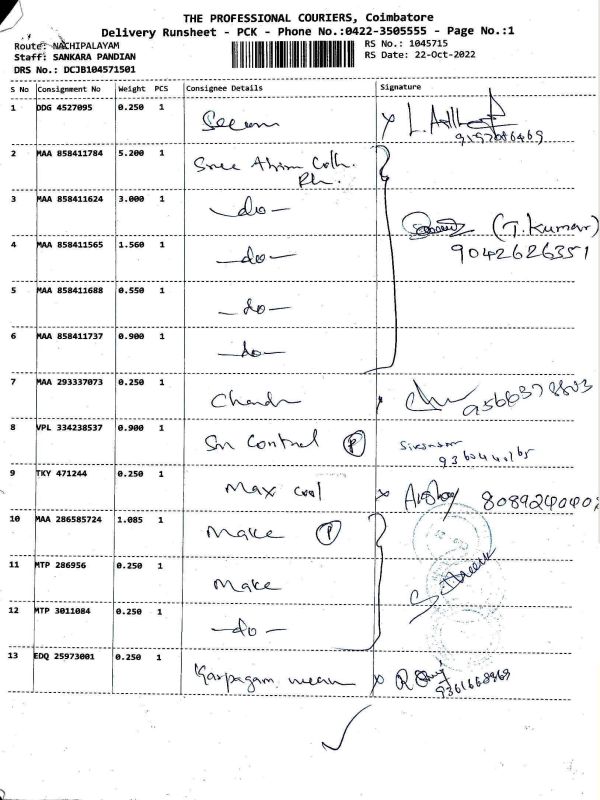 THE PROFESSIONAL COURIERS, Coimbatore
Delivery Runsheet - PCK - Phone No.:0422-3505555 - Page No.:1
Route: NACHIPALAYAM
Staff: SANKARA PANDIAN
DRS No.: DCJB104571501
RS No.: 1045715
RS Date: 22-Oct-2022
S No Consignment No Weight PCS Consignee Details Signature
1 DDG 4527095 0.250 1
2 MAA 858411784 5.200 1 Sree
3 MAA 858411624 3.000 1 -do-
4 MAA 858411565 1.560 1 -do-
(T.Kumar)
9042626351
5 MAA 858411688 0.550 1 -do-
6 MAA 858411737 0.900 1 -do-
7 MAA 293337073 0.250 1
8 VPL 334238537 0.900 1 Control P
9 TKY 471244 0.250 1 Max cool
10 MAA 286585724 1.085 1 Make P
11 MTP 286956 0.250 1 Make
12 MTP 3011084 0.250 1 -do-
13 EDQ 25973001 0.250 1 Karpagam